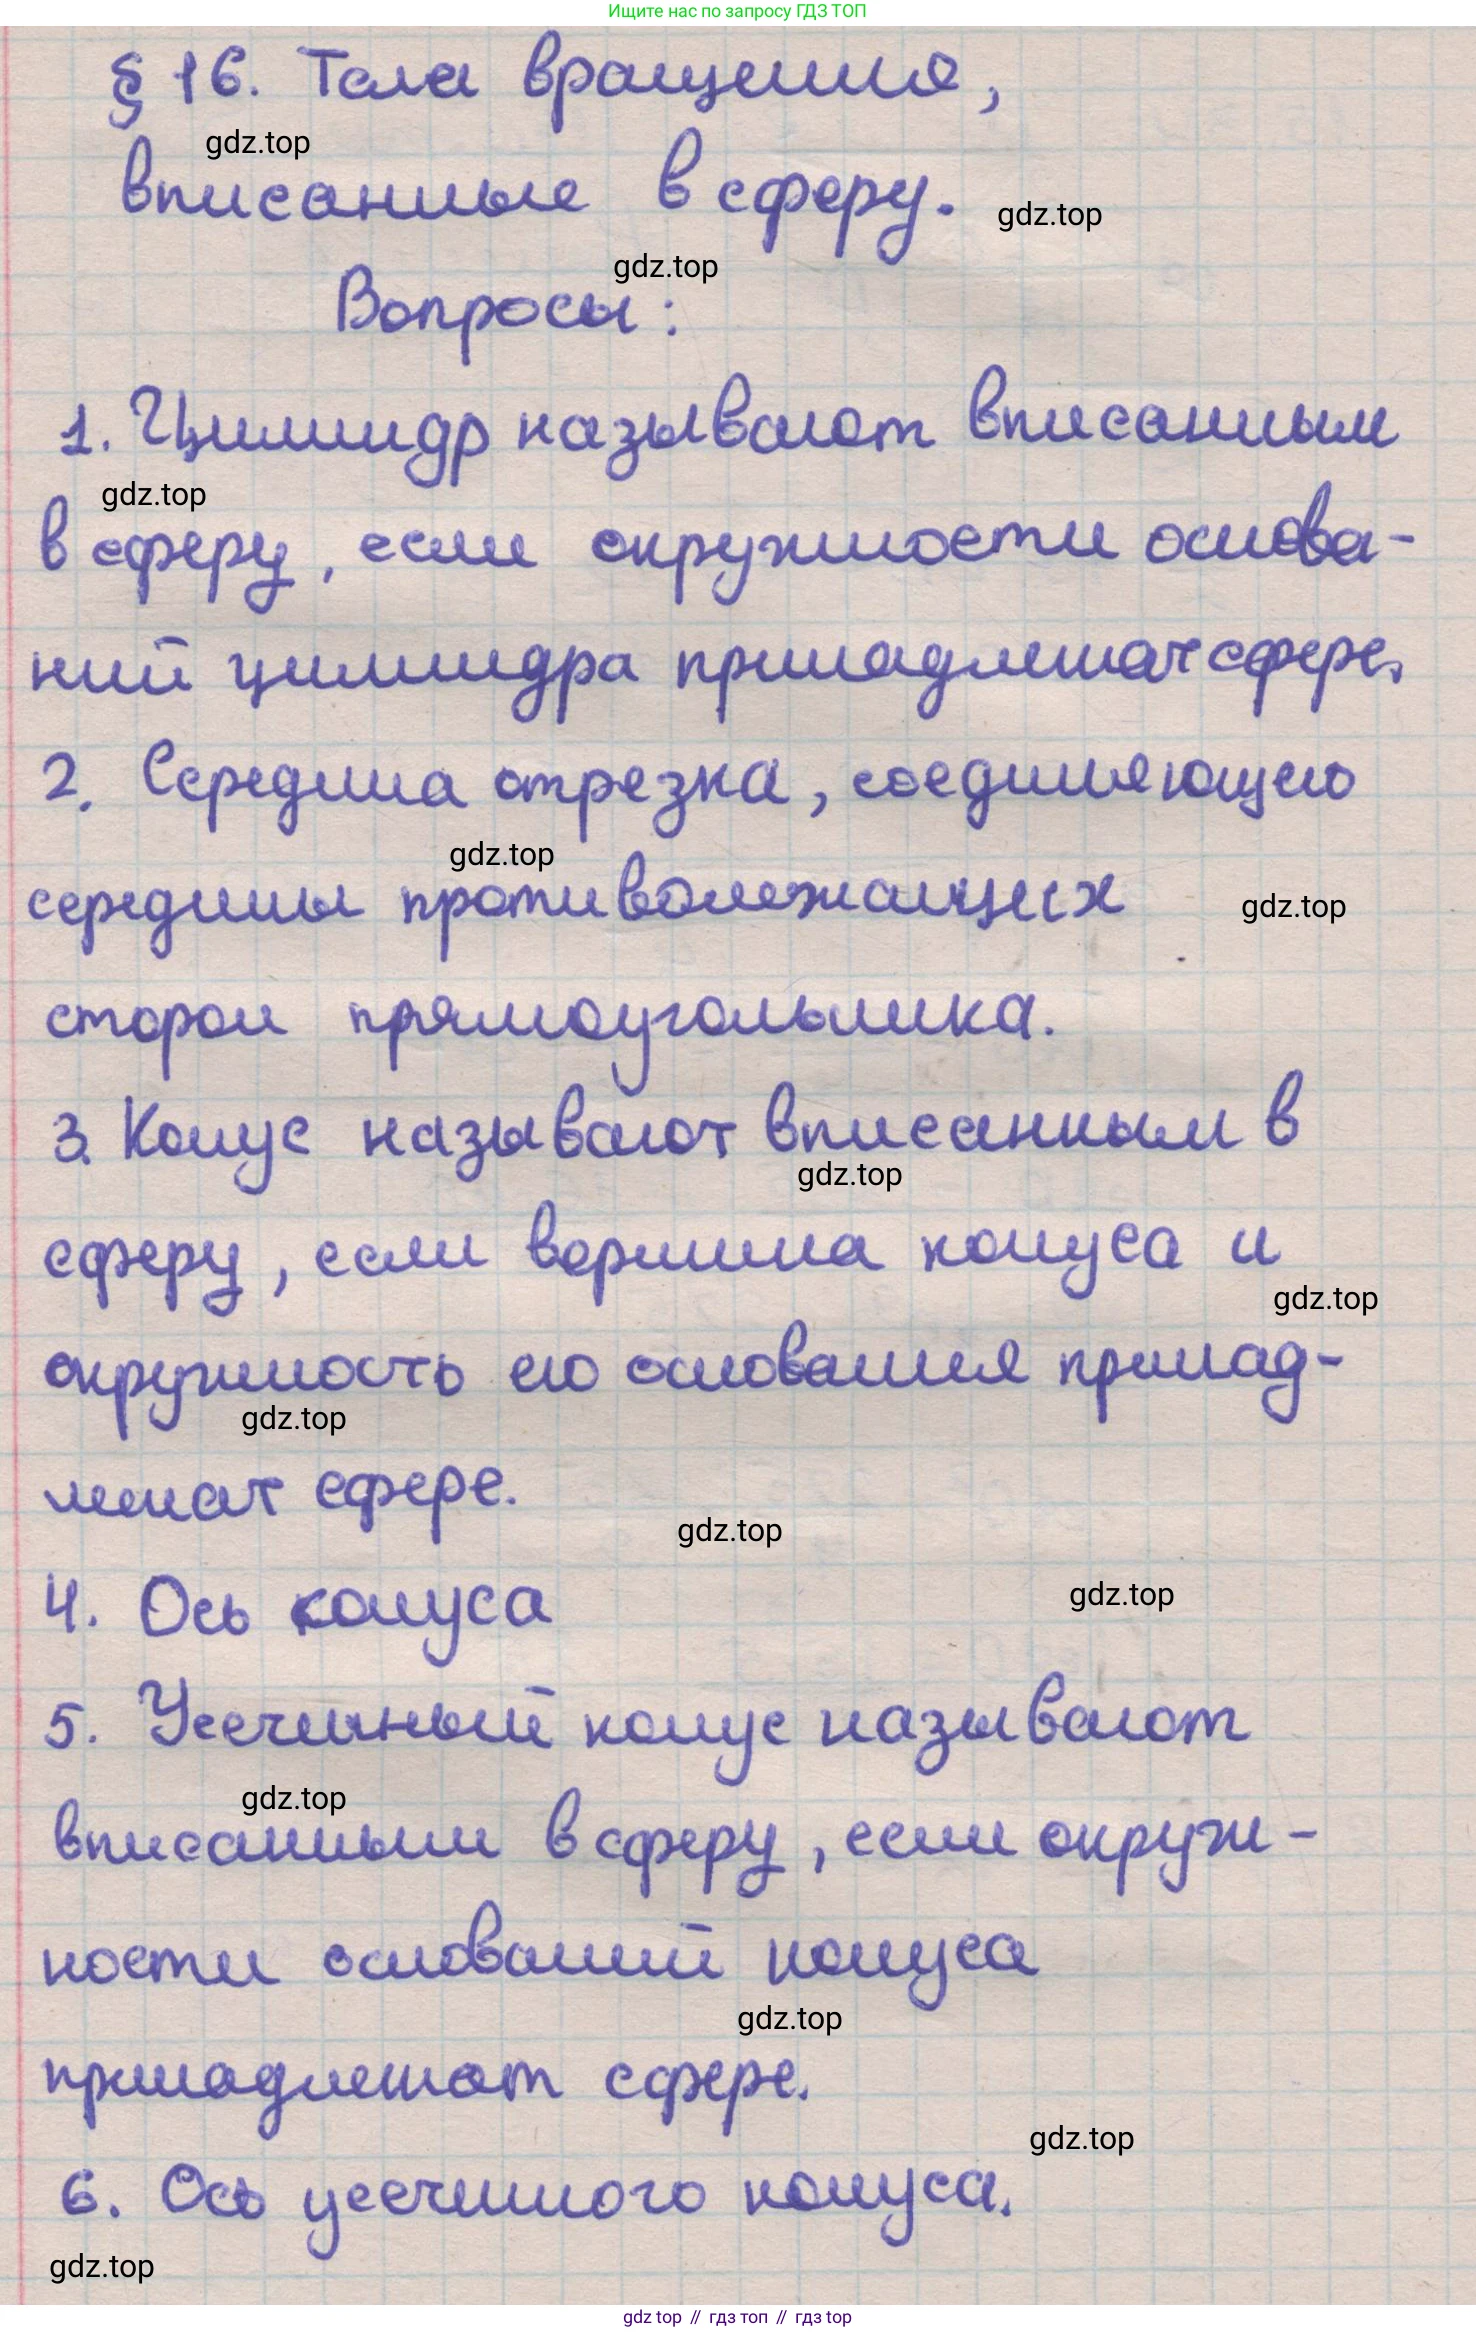 Ищите нас по запросу ГДЗ ТОП
§ 16. Тела вращения,
gdz.top
вписанные в сферу.
gdz.top
gdz.top
Вопросы:
1. Цилиндр называют вписанным
gdz.top
в сферу, если окружности основа-
ний цилиндра принадлежат сфере.
2. Середина отрезка, соединяющего
gdz.top
середины противолежащих
gdz.top
сторон прямоугольника.
3. Конус называют вписанным в
gdz.top
сферу, если вершина конуса и
gdz.top
окружность его основания принад-
gdz.top
лежат сфере.
gdz.top
4. Ось конуса
gdz.top
5. Усеченный конус называют
gdz.top
вписанным в сферу, если окруж-
ности оснований конуса
gdz.top
принадлежат сфере.
gdz.top
6. Ось усеченного конуса.
gdz.top
gdz top // гдз топ // гдз top